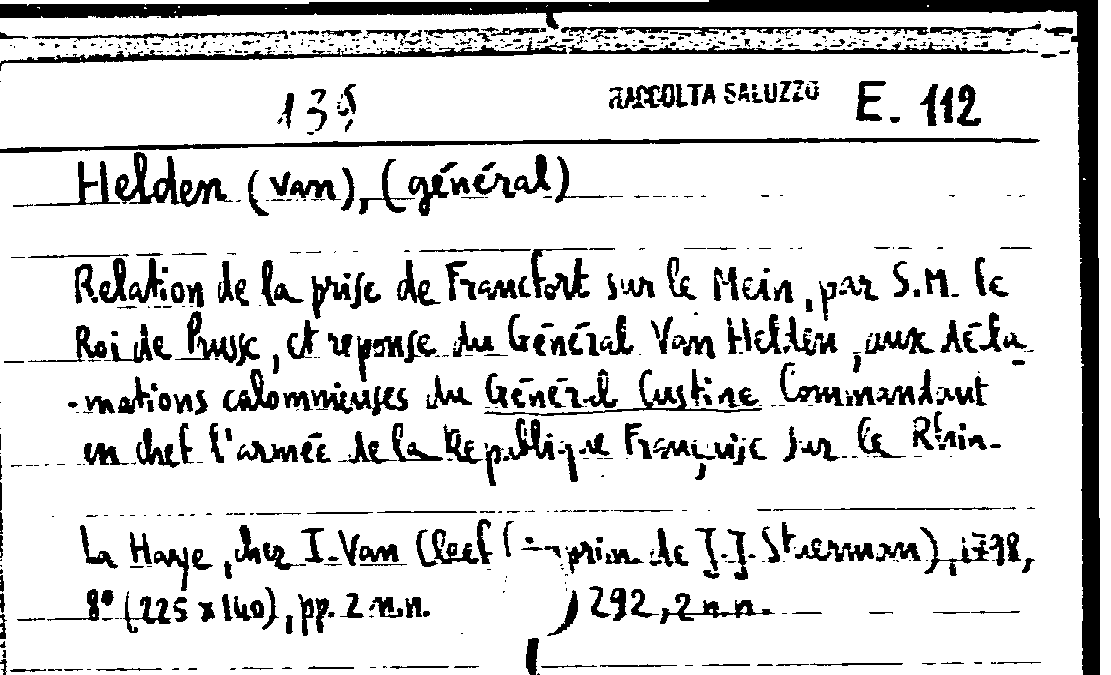 139 RACCOLTA SALUZZO E. 112
Helden (van), (général)
Relation de la prise de Francfort sur le Mein, par S.M. le
Roi de Prusse, et reponse du Général Van Helden, aux décla
-mations calomnieuses du Général Custine Commandant
en chef l'armée de la Republique Française sur le Rhin.
La Haye, chez I. Van Cleef (imprim. de J.J. Stuerman), 1798,
8° (225 x 140), pp. 2 n.n. , 292, 2 n.n.